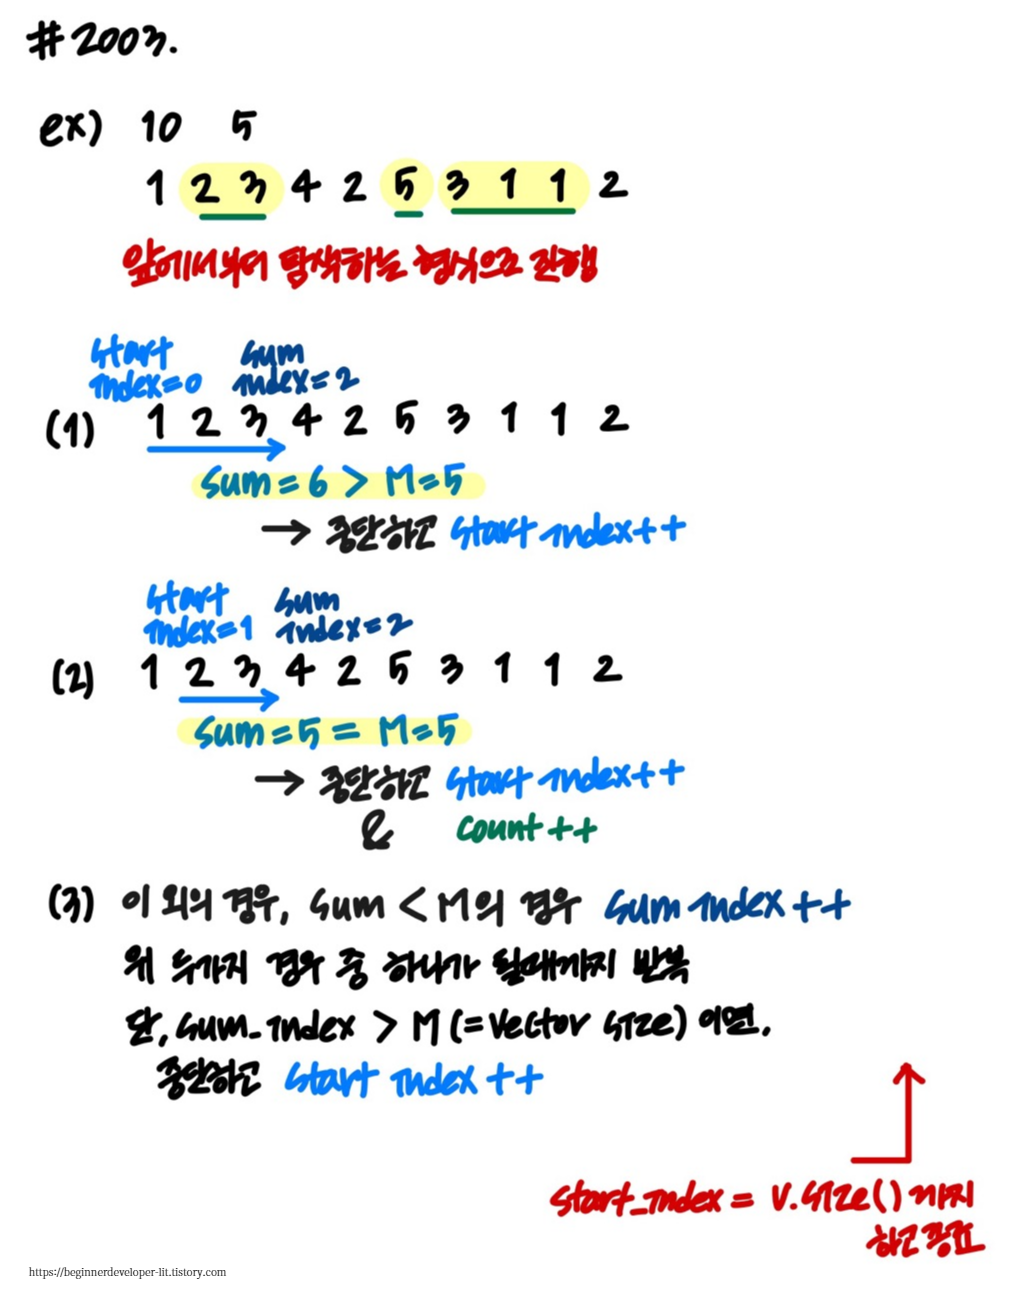 #2003.
ex) 10 5
1 2 3 4 2 5 3 1 1 2
앞에서부터 탐색하는 형식으로 진행
start index=0 sum index=2
(1) 1 2 3 4 2 5 3 1 1 2
sum=6 > M=5
→ 중단하고 start index++
start index=1 sum index=2
(2) 1 2 3 4 2 5 3 1 1 2
sum=5 = M=5
→ 중단하고 start index++
& count++
(3) 이 외의 경우, sum < M의 경우 sum index++
위 두가지 경우 중 하나가 될때까지 반복
단, sum_index > M (=vector size) 이면,
중단하고 start index++
start_index = v.size() 까지
하고 종료
https://beginnerdeveloper-lit.tistory.com